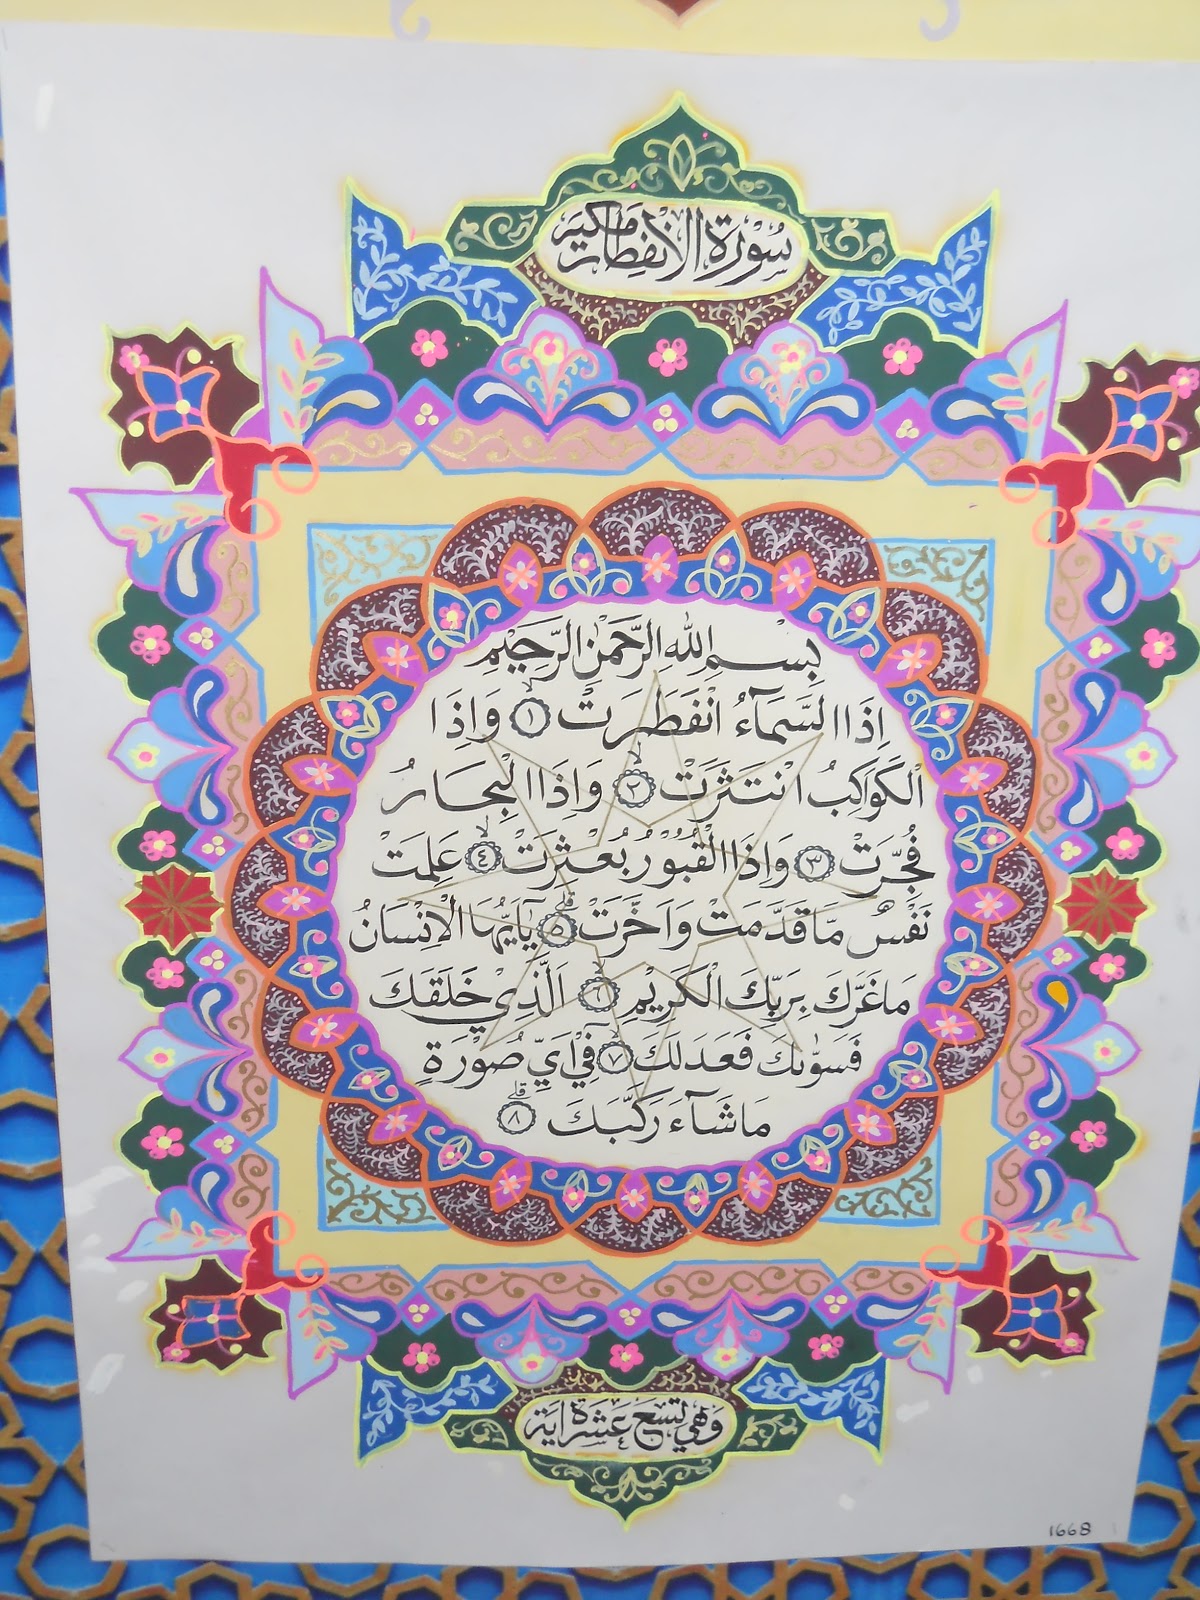 سُوْرَةُ الْاِنْفِطَارِ مَكِّيَّة
بِسْمِ اللهِ الرَّحْمٰنِ الرَّحِيْمِ
اِذَا السَّمَآءُ انْفَطَرَتْ ۝١ وَاِذَا
الْكَوَاكِبُ انْتَثَرَتْ ۝٢ وَاِذَا الْبِحَارُ
فُجِّرَتْ ۝٣ وَاِذَا الْقُبُوْرُ بُعْثِرَتْ ۝٤ عَلِمَتْ
نَفْسٌ مَّا قَدَّمَتْ وَاَخَّرَتْ ۝٥ يٰٓاَيُّهَا الْاِنْسَانُ
مَا غَرَّكَ بِرَبِّكَ الْكَرِيْمِ ۝٦ الَّذِيْ خَلَقَكَ
فَسَوّٰىكَ فَعَدَلَكَ ۝٧ فِيْٓ اَيِّ صُوْرَةٍ
مَا شَآءَ رَكَّبَكَ ۝٨
وَهِيَ تِسْعَ عَشْرَةَ اٰيَة
1668